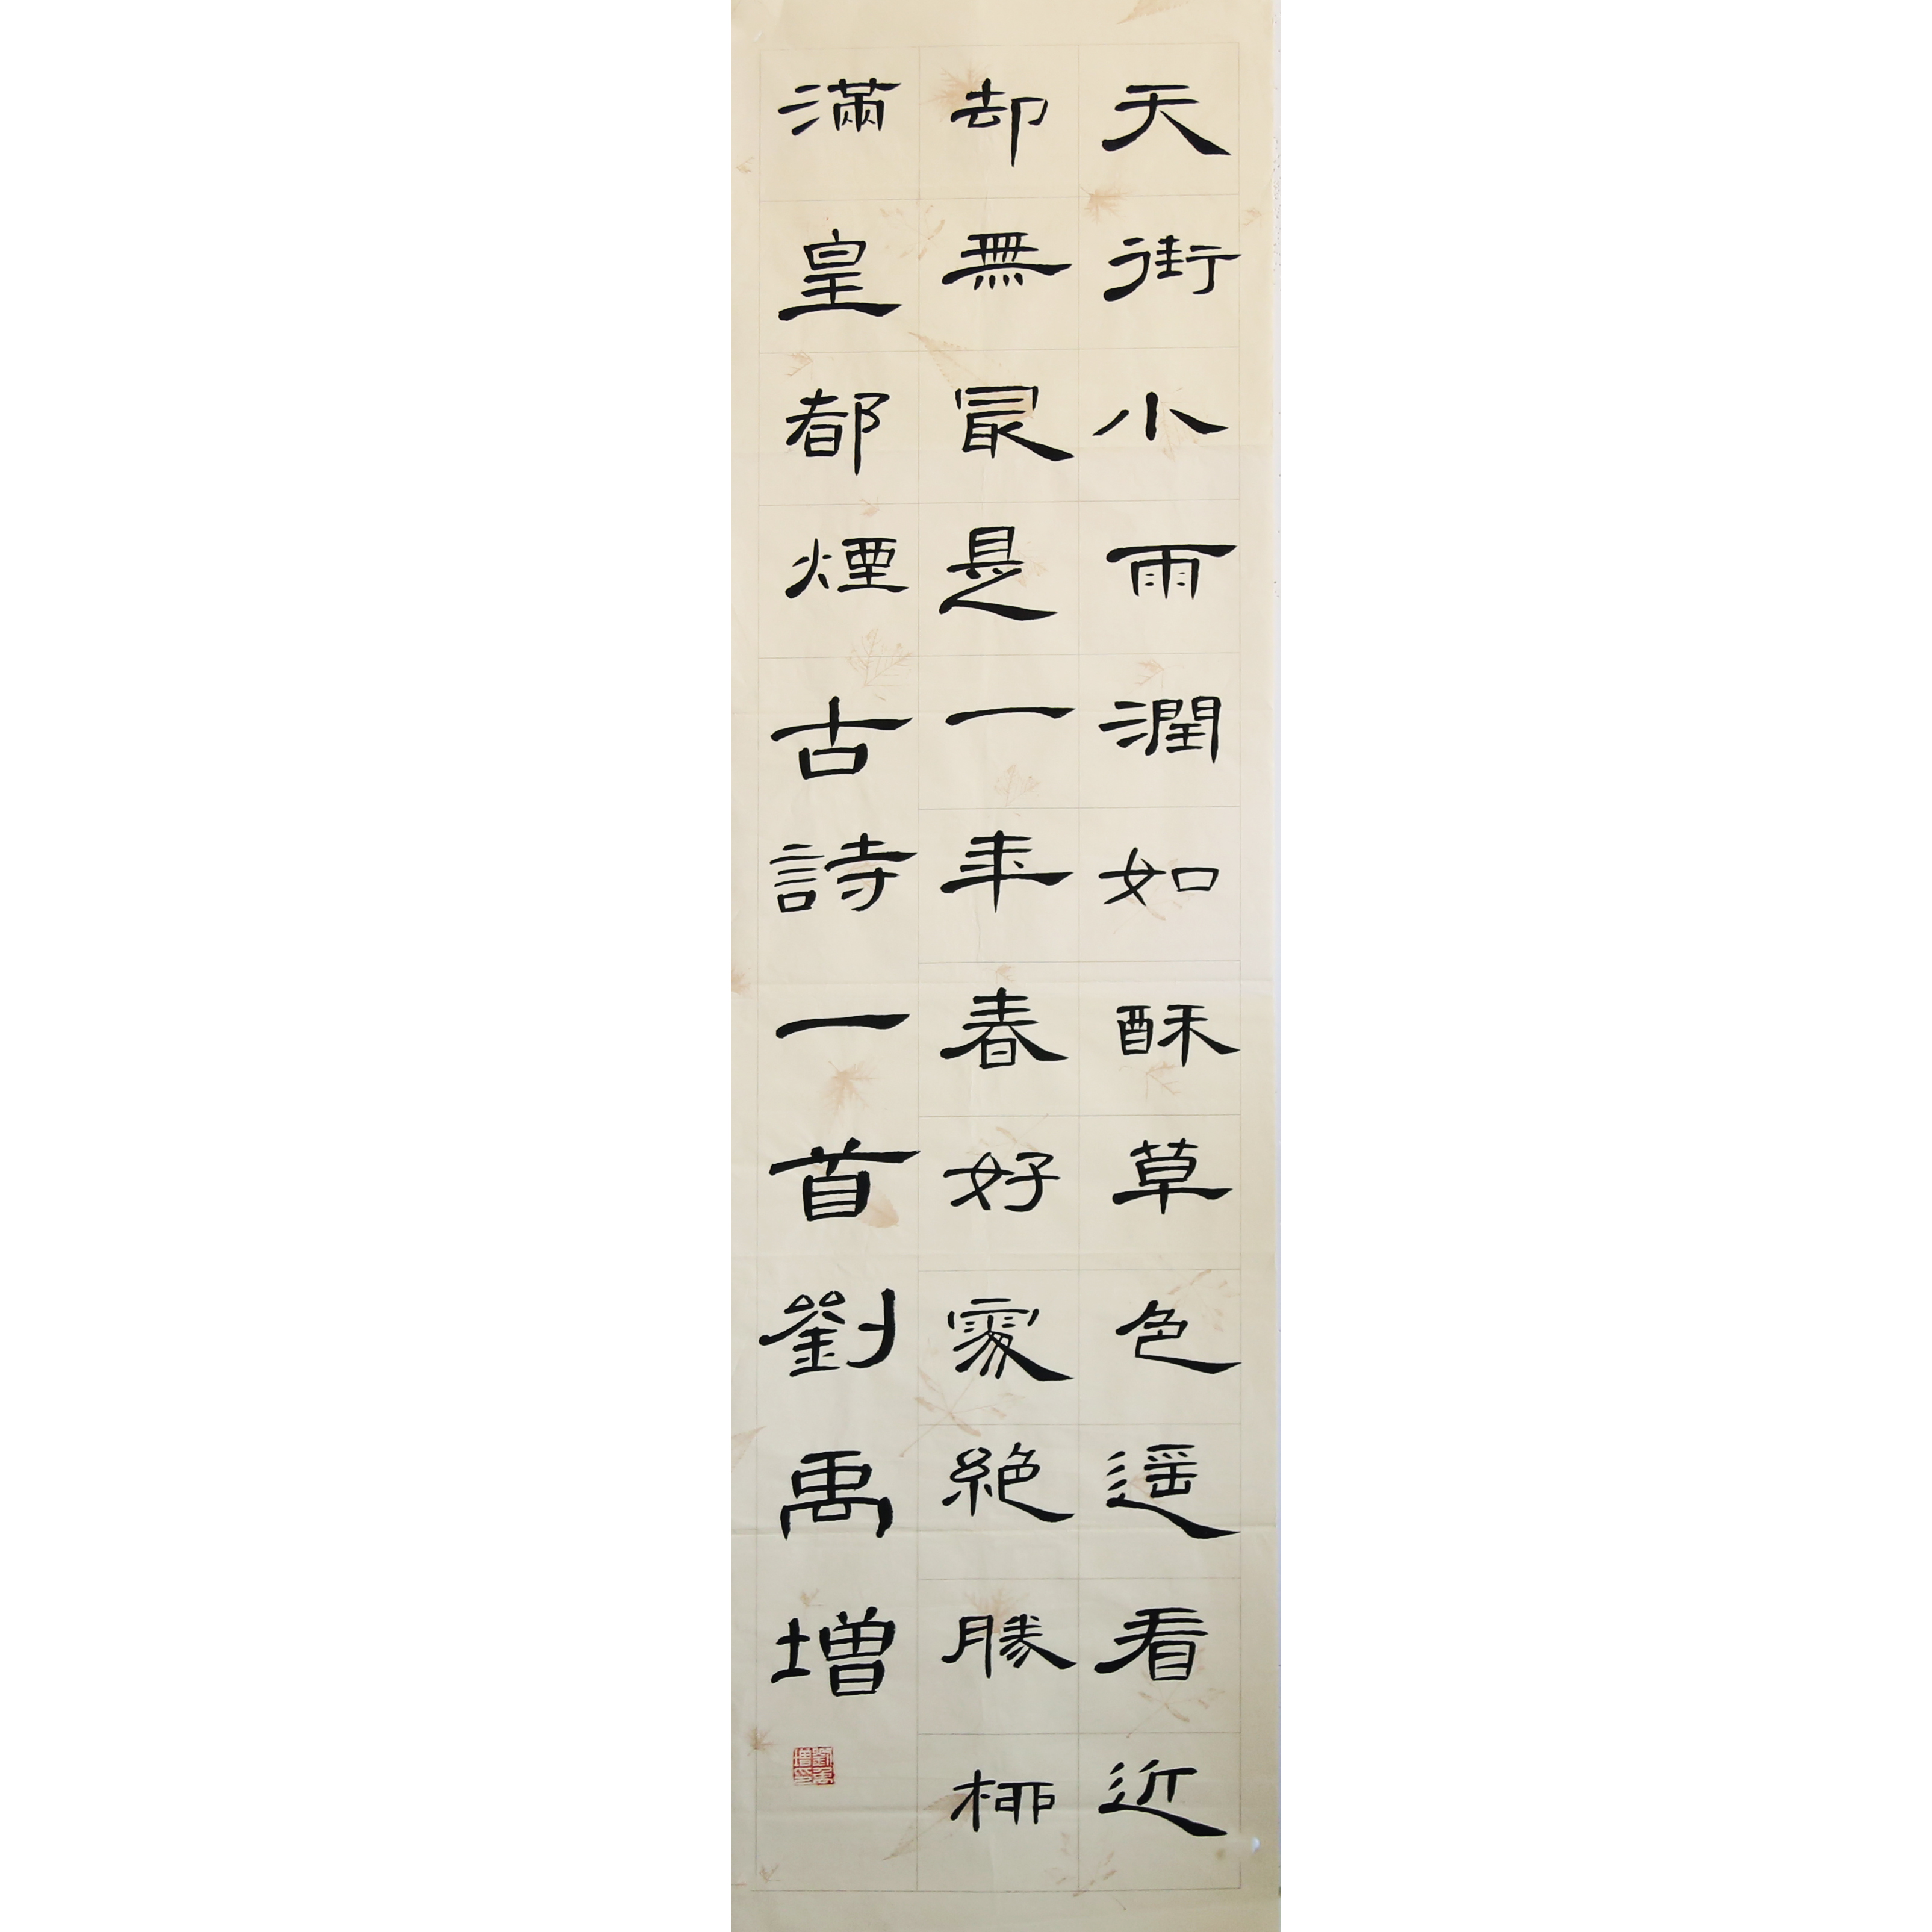 天街小雨潤如酥草色遥看近
却無最是一年春好處絕勝柳
滿皇都煙古詩一首劉禹增
劉禹增印